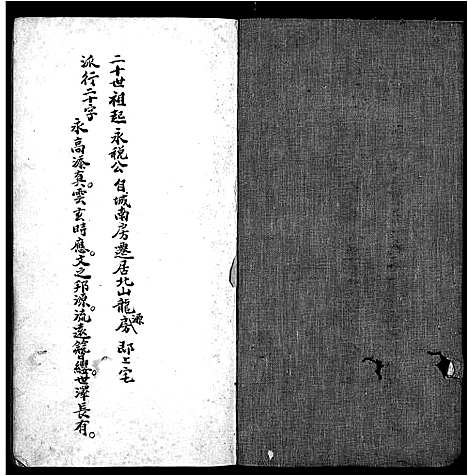 二十世祖起永税公自城南房迁居北山龍源房郡上宅
派行二十字
永高添真。雲玄時應。文之邦源。流遠簪纓。世澤長有。